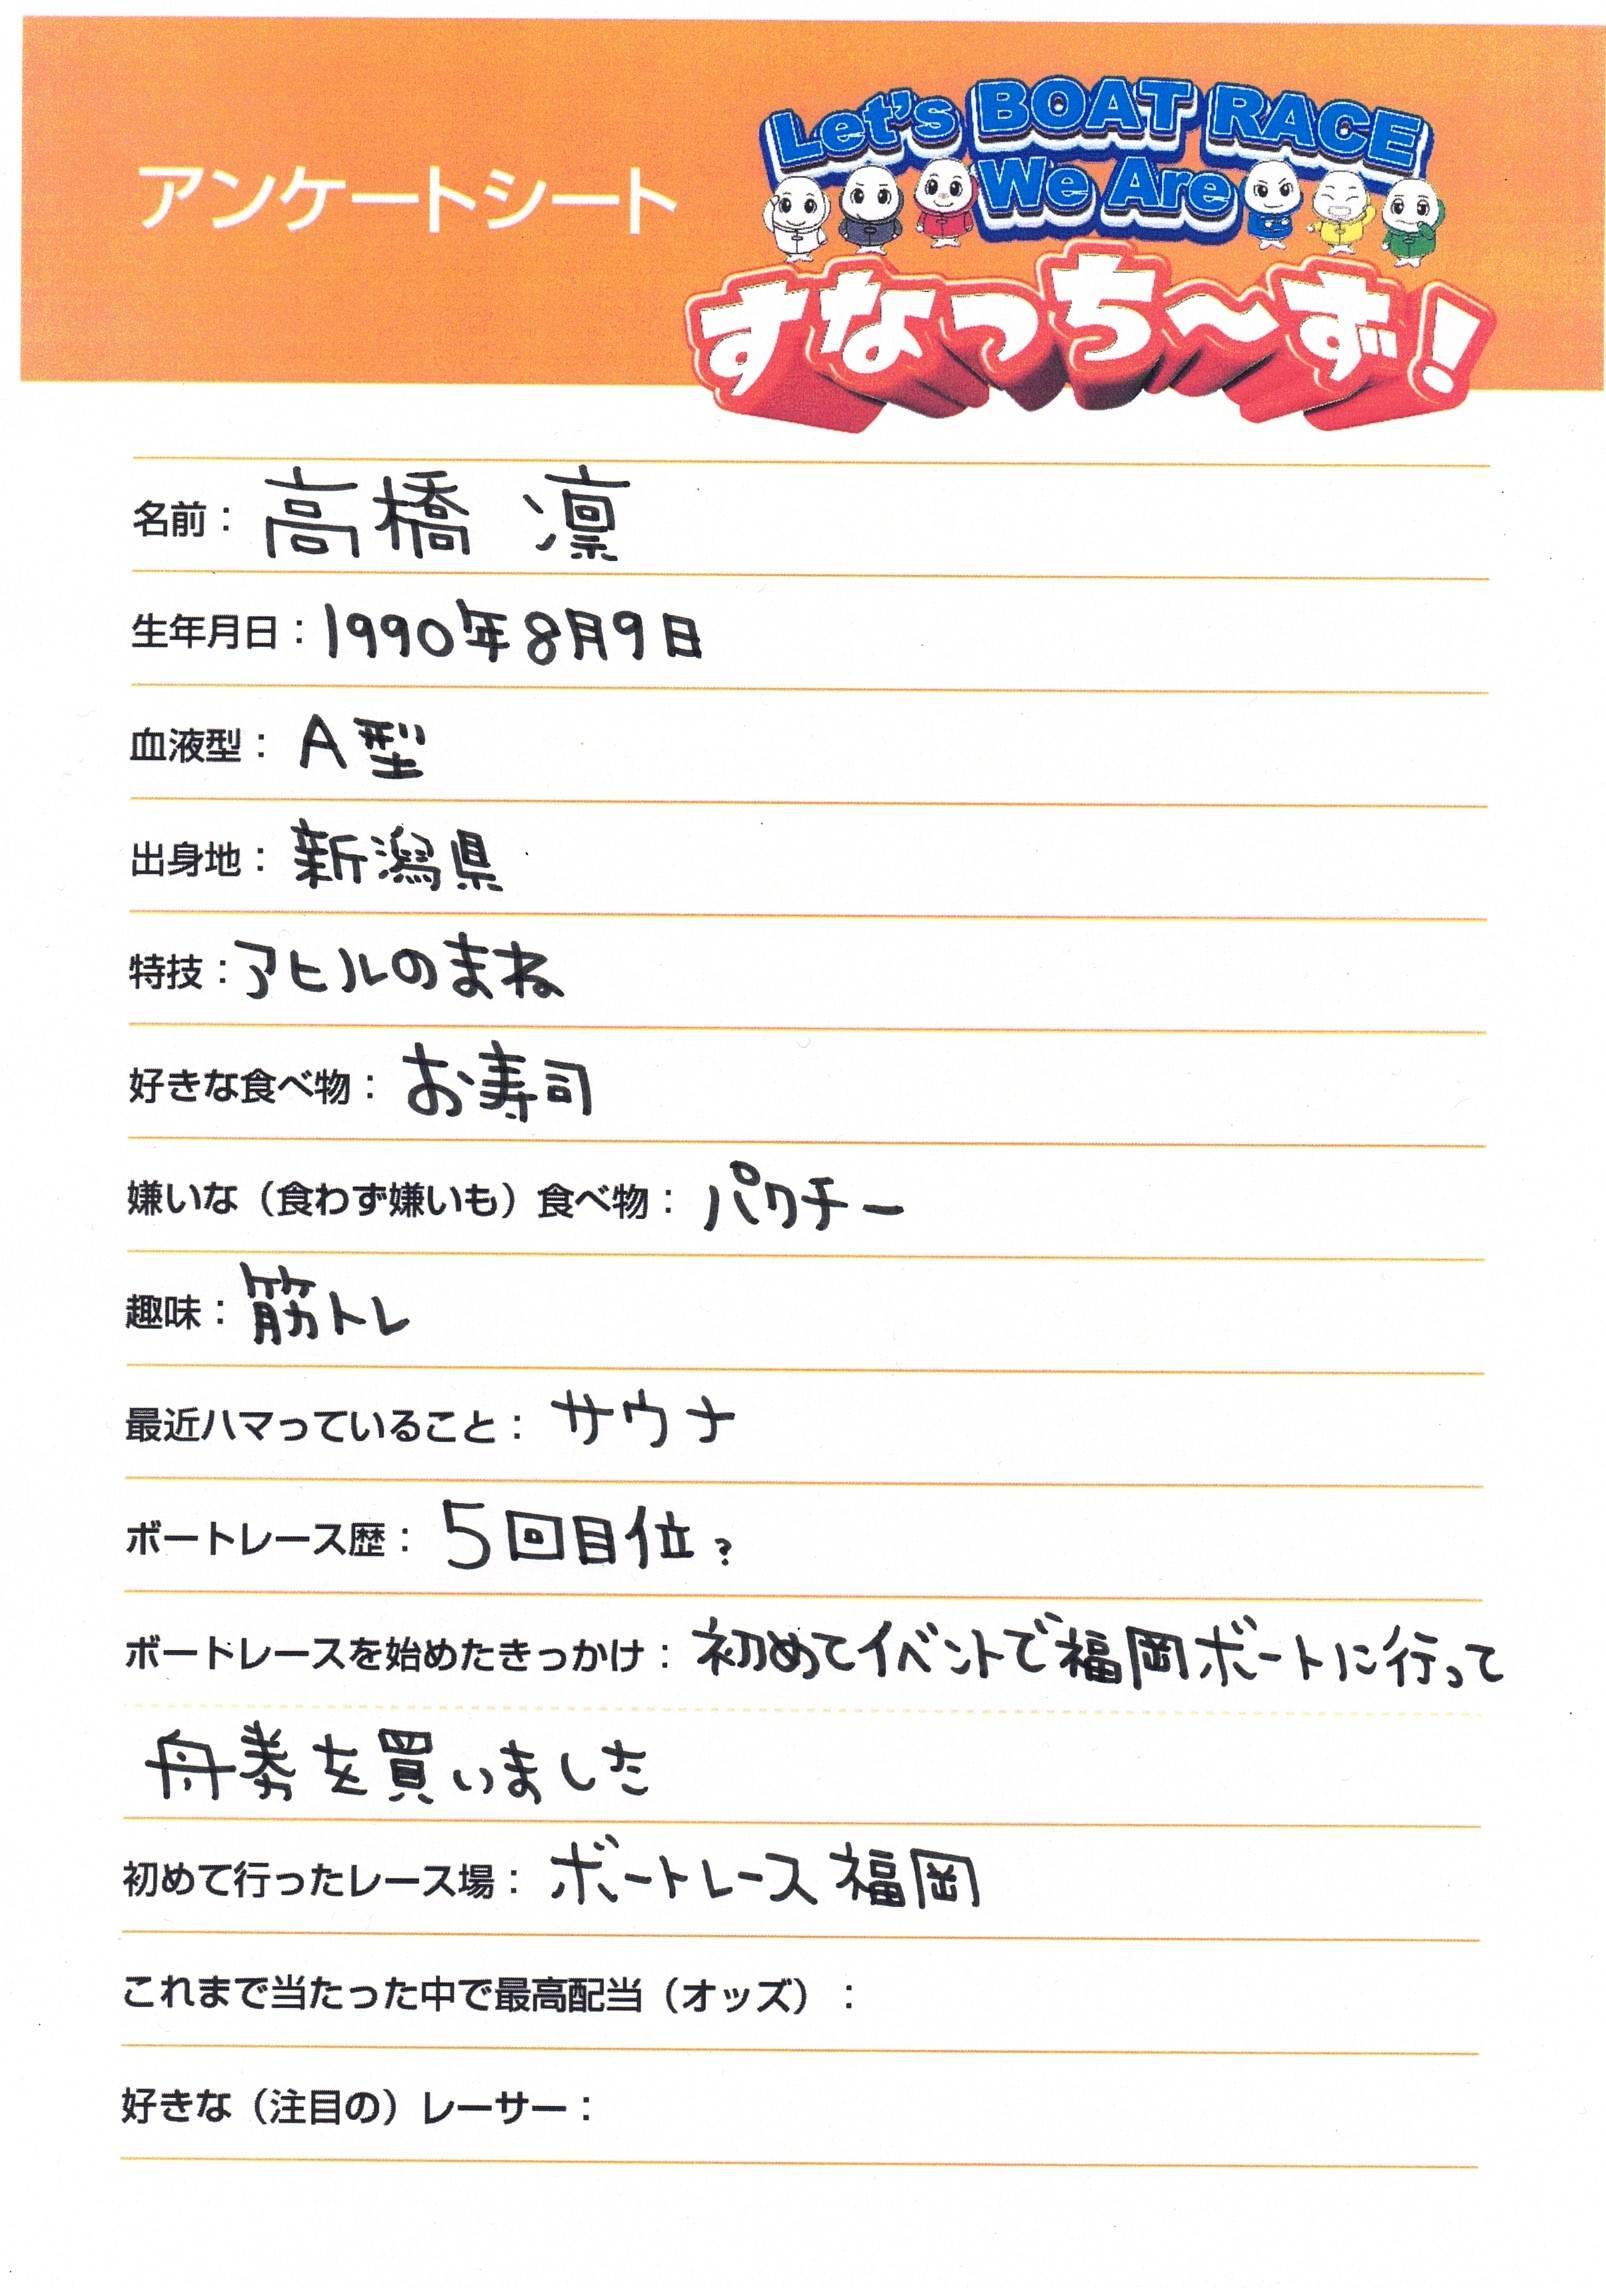 アンケートシート
Let's BOAT RACE
We Are
すなっち〜ず!
名前： 高橋 凛
生年月日：1990年8月9日
血液型： A型
出身地： 新潟県
特技：アヒルのまね
好きな食べ物： お寿司
嫌いな（食わず嫌いも）食べ物： パクチー
趣味：筋トレ
最近ハマっていること： サウナ
ボートレース歴： 5回目位?
ボートレースを始めたきっかけ： 初めてイベントで福岡ボートに行って
舟券を買いました
初めて行ったレース場： ボートレース福岡
これまで当たった中で最高配当（オッズ）：
好きな（注目の）レーサー：